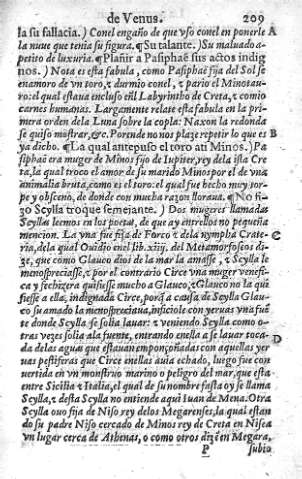 de Venus. 209
la su fallacia.) Conel engaño de que vso conel en ponerle A
la nuue que tenia su figura. ¶ Su talante.) Su maluado a-
petito de luxuria. ¶ Plañir a Pasiphae sus actos indig
nos.) Nota es esta fabula, como Pasiphae fija del Sol se
enamoro de vn toro, ⁊ durmio conel, ⁊ pario el Minotau-
ro: el qual estaua encluso enel Labyrintho de Creta, ⁊ comia
carnes humanas. Largamente relate esta fabula en la pri
mera orden dela Luna sobre la copla: Naxon la redonda
se quiso mostrar, &c. Por ende no nos plaze repetir lo que es B
ya dicho. ¶ La qual antepuso el toro ati Minos.) Pa
siphae era muger de Minos fijo de Iupiter, rey dela isla Cre
ta, la qual troco el amor de su marido Minos por el de vna
animalia bruta, como es el toro: el qual fue hecho muy tor-
pe y obsceno, de donde con mucha razon marauilla. ¶ No fi-
zo Scylla troque semejante.) Dos mugeres llamadas
Scyllas leemos en los poetas, de que ay entrellos no pequeña
mencion. La vna fue fija de Forco ⁊ dela nympha Crate- C
ria, dela qual Ouidio enel lib. xiiij. del Metamorfoseos di-
ze, que como Glauco dios de la mar la amasse, ⁊ Scylla le
menospreciasse, ⁊ por el contrario Circe vna muger venefi-
ca y fechizera quisiesse mucho a Glauco, ⁊ Glauco no la qui
siesse a ella, indignada Circe, porq̃ a causa de Scylla Glau-
co su amado la menospreciaua, inficiole con yeruas vna fuẽ
te donde Scylla se solia lauar: ⁊ veniendo Scylla como o-
tras vezes solia ala fuente, entrando enella a se lauar toca- D
da delas aguas que estauan emponçoñadas con aquellas yer
uas pestiferas que Circe enellas auia echado, luego fue con
vertida en vn monstruo marino o peligro del mar, que esta
entre Sicilia ⁊ Italia, el qual de su nombre fasta oy se llama
Scylla, ⁊ desta Scylla no entiende aqui Iuan de Mena. Otra
Scylla ouo fija de Niso rey delos Megarenses, la qual estan
do su padre Niso cercado de Minos rey de Creta en Nisea
vn lugar cerca de Athenas, o como otros dizẽ en Megara,
P subio